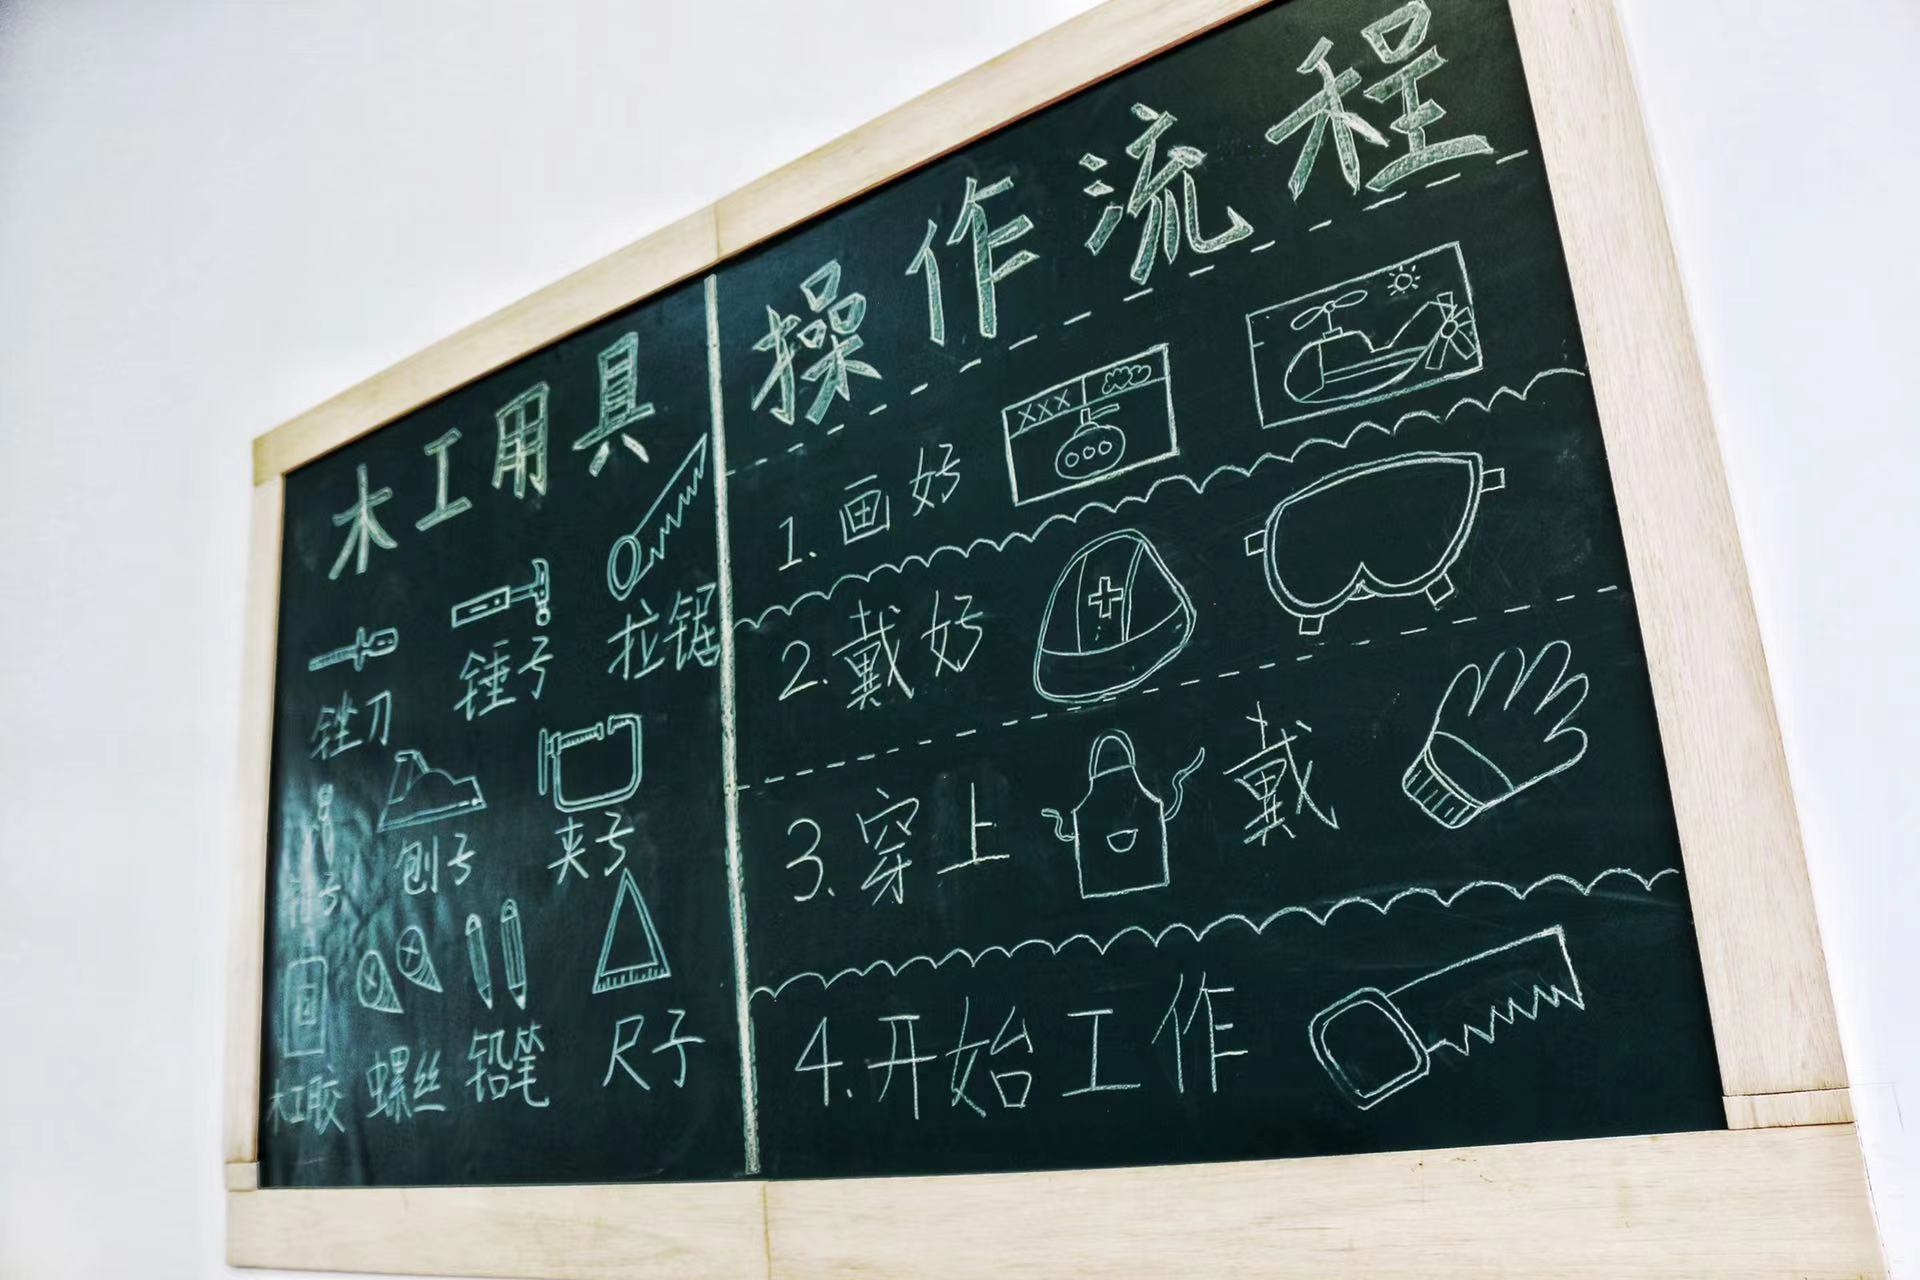 木工用具
锉刀 锤子 拉锯
刨子 夹子
木工胶 螺丝 铅笔 尺子
操作流程
1.画好
XXX
2.戴好
3.穿上 戴
4.开始工作